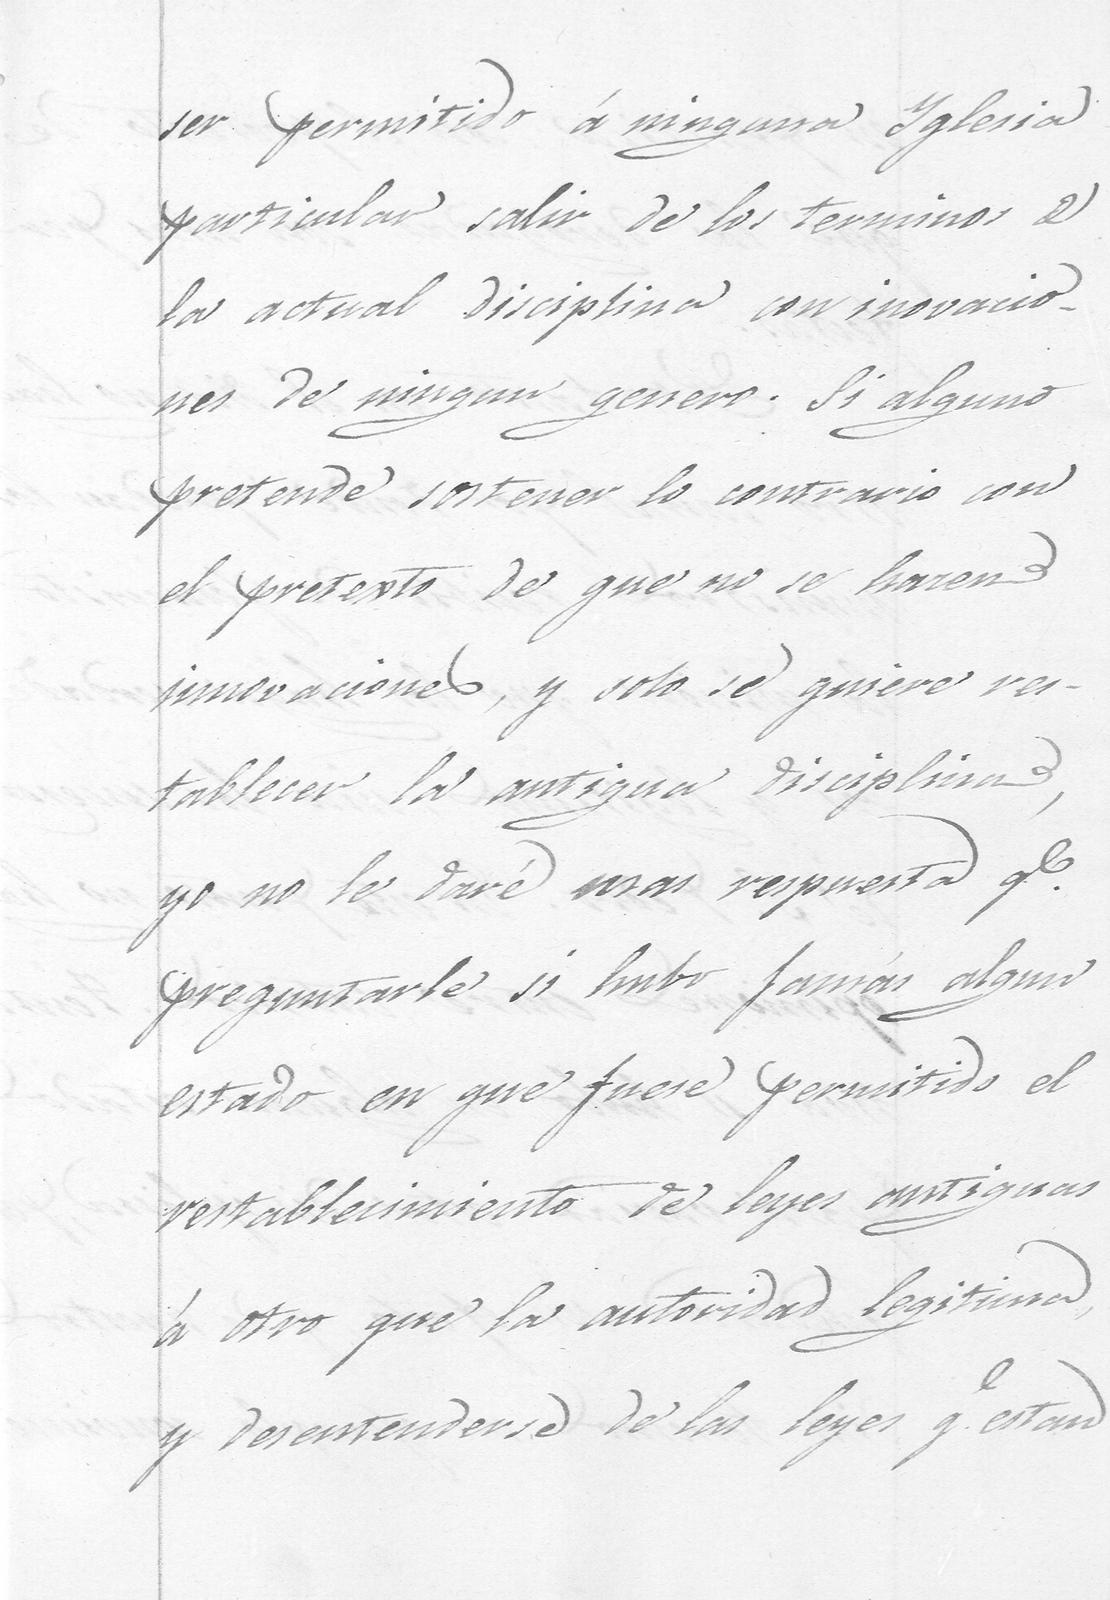 ser permitido á ninguna Yglesia
particular salir de los terminos d
la actual disciplina con inovacio-
nes de ningun genero. Si alguno
pretende sostener lo contrario con
el pretexto de que no se hazen
innovaciones, y solo se quiere res-
tablecer la antigua disciplina,
yo no le daré mas respuesta qe.
preguntarle si hubo jamás algun
estado en que fuese permitido el
restablecimiento de leyes antiguas
á otro que la autoridad legitima,
y desentenderse de las leyes qe. estan